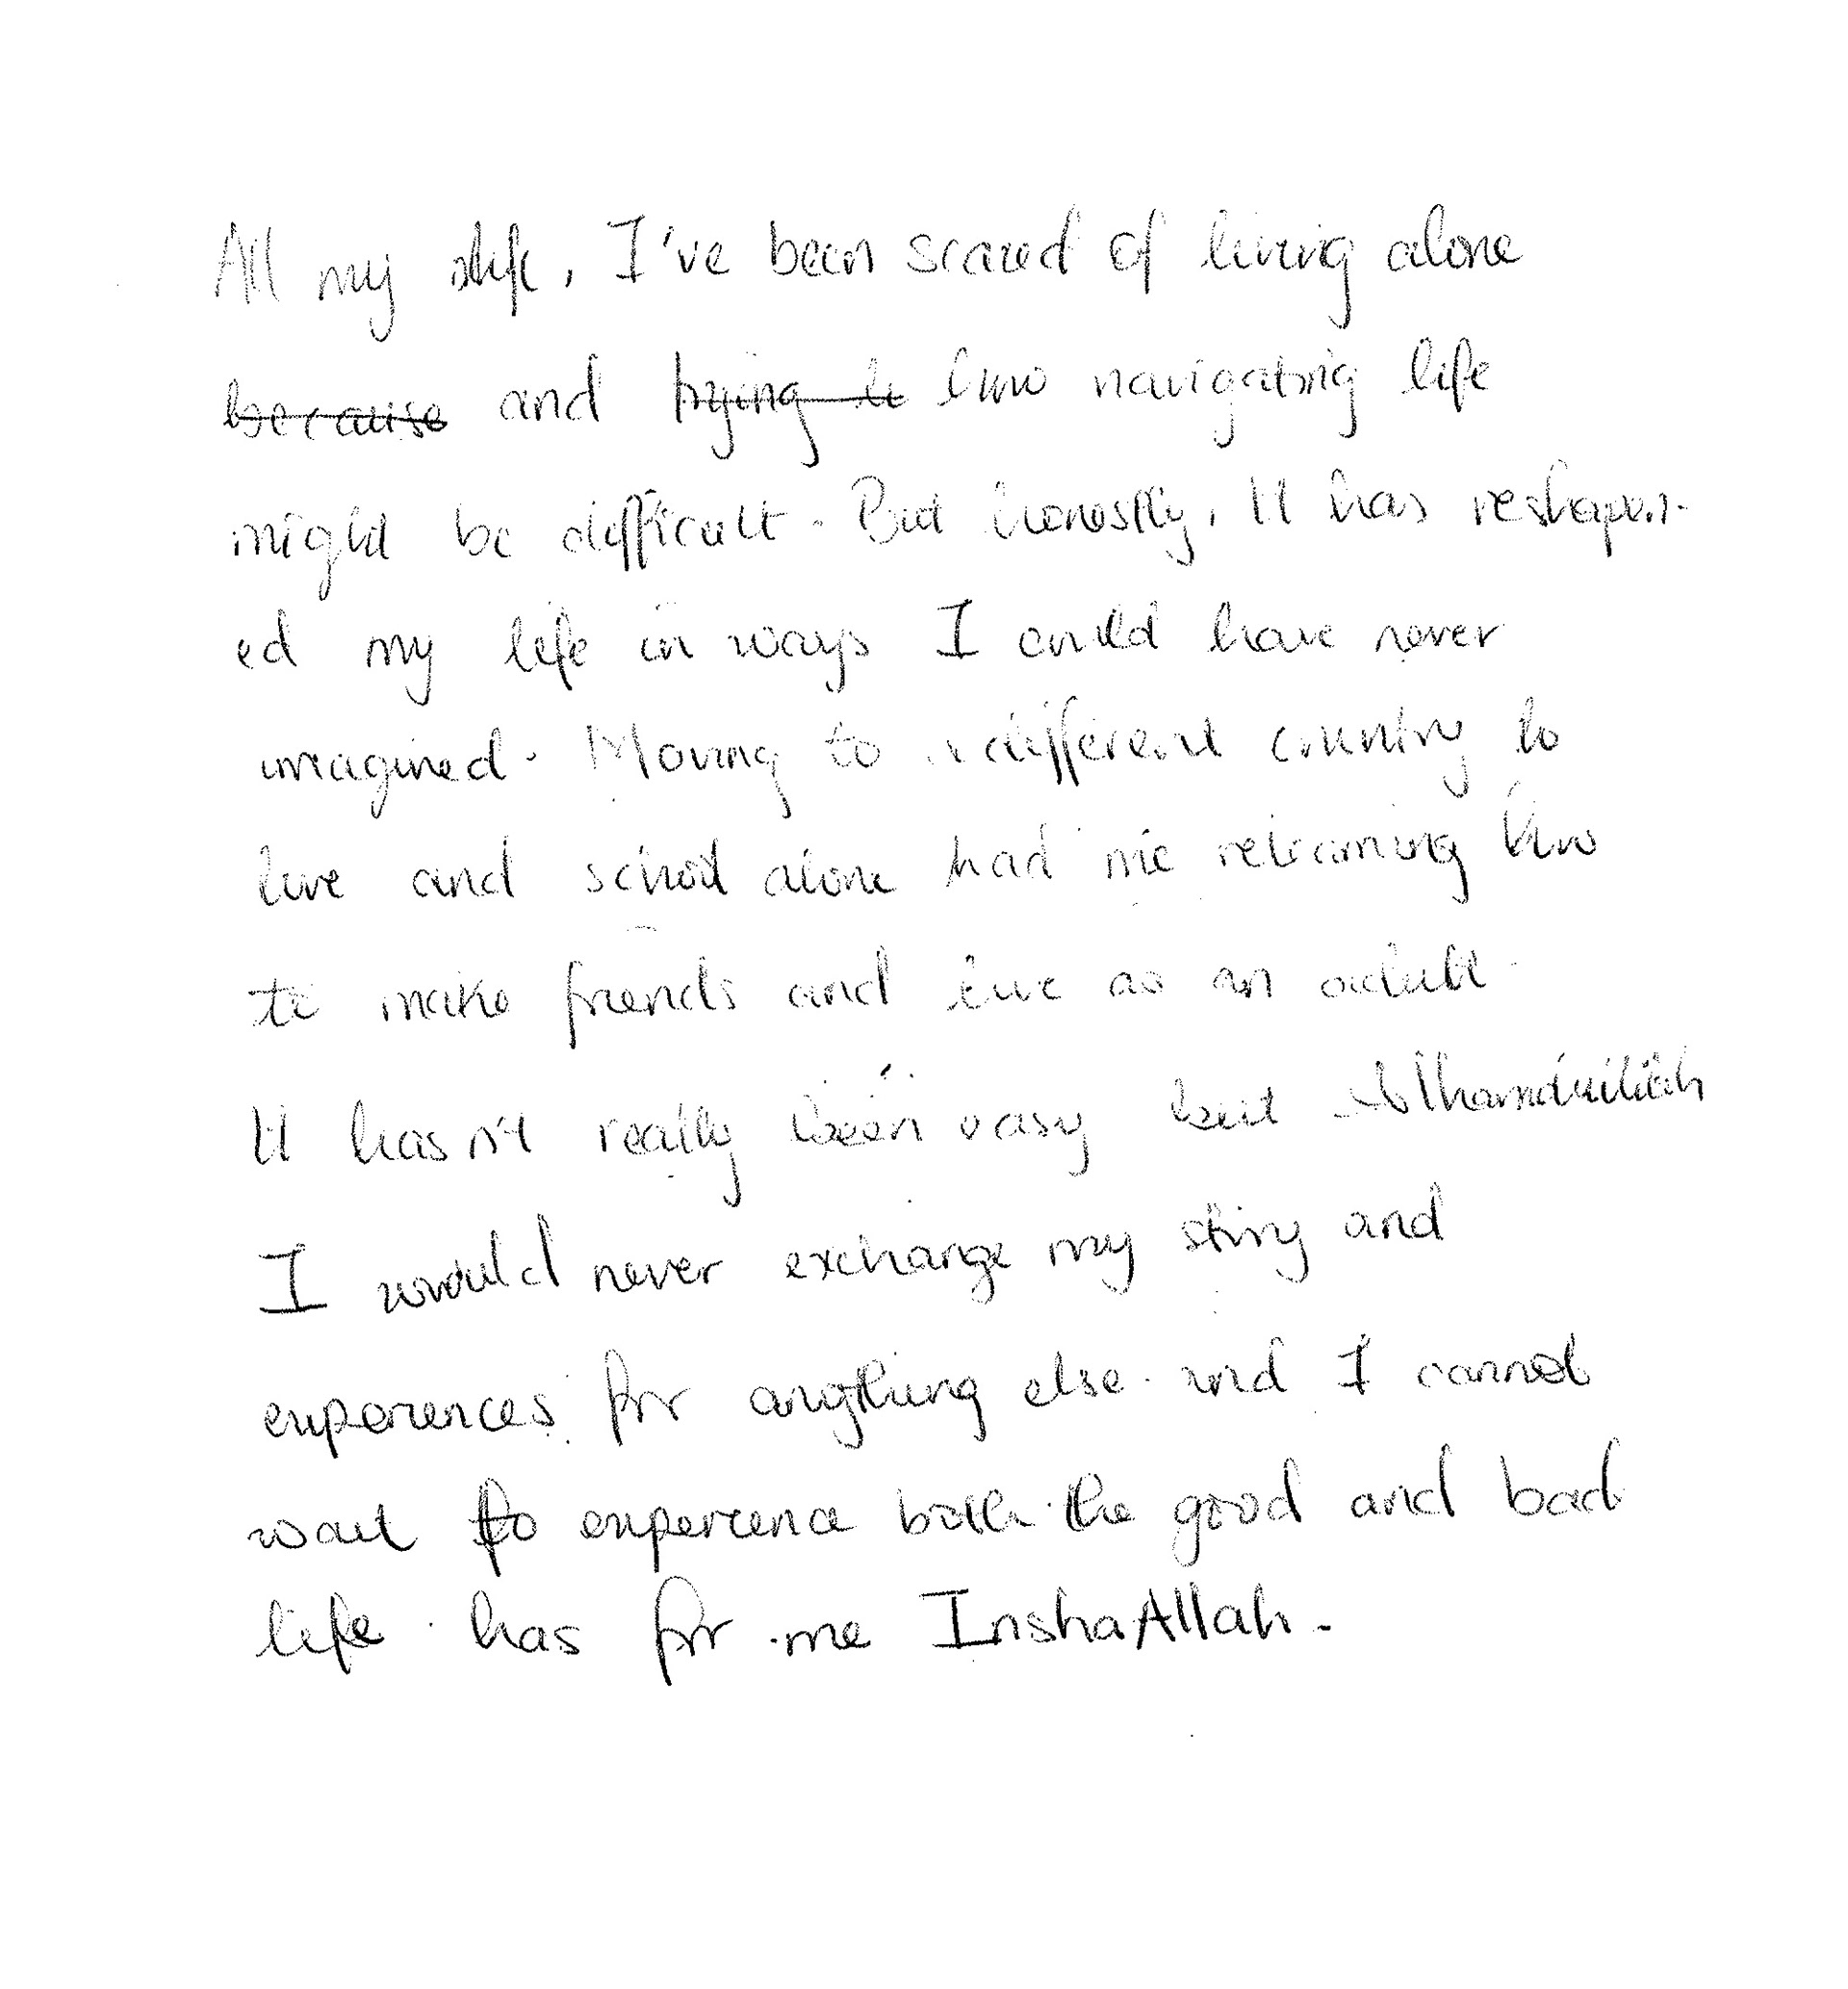 All my life, I've been scared of living alone
because and trying to how navigating life
might be difficult. But honestly, It has reshapen-
ed my life in ways I could have never
imagined. Moving to a different country to
live and school alone had me relearning how
to make friends and live as an adult.
It hasn't really been easy but Alhamdulilah
I would never exchange my story and
experiences for anything else and I cannot
wait to experience both the good and bad
life has for me InshaAllah.